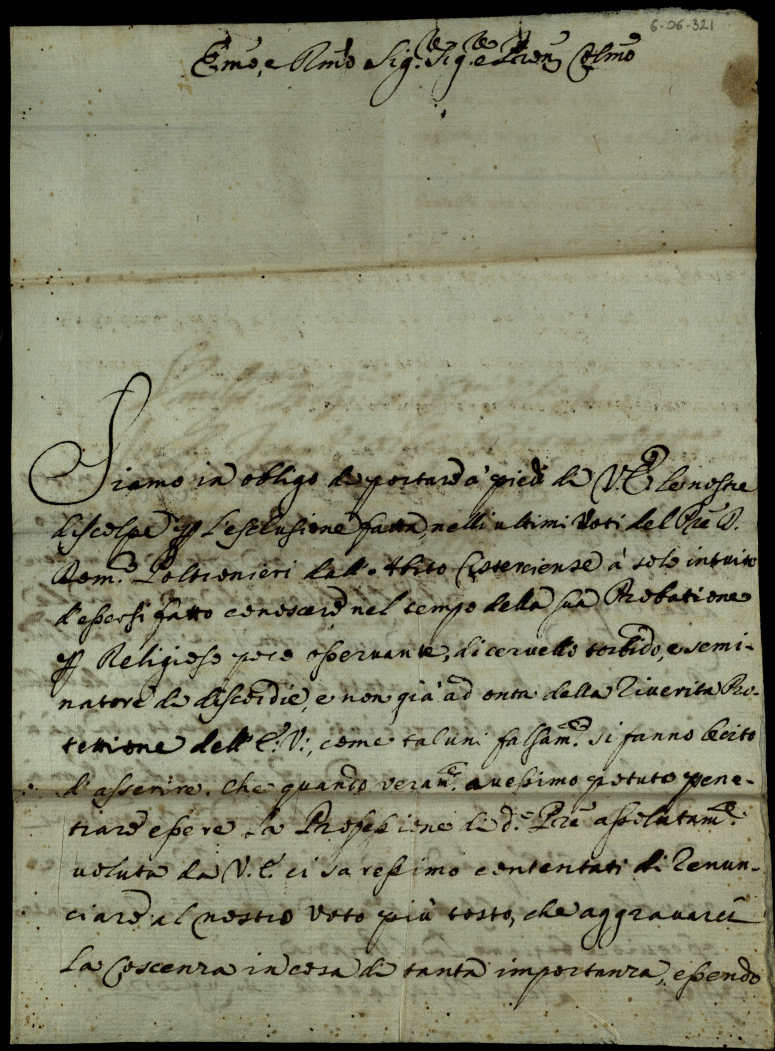 6-06-321
Em̃o, e Rm̃o Sig.r Sig.re e Pron Colm̃o
Siamo in obligo di portare à piedi di V. E. le nostre
discolpe p l'esclusione fatta, nelli ultimi Voti del Pre D.
Dom.co Poltronieri dall'Abito Cisterciense à solo intuito
d'essersi fatto conoscere nel tempo della sua Probatione
p Religioso poco osservante, di cervello torbido, e semi-
natore di discordie, e non già ad onta della Riverita Pro-
tettione dell'E. V:, come taluni falsam.te si fanno lecito
d'asserire. Che quando veram.te avessimo potuto pene-
trare essere la Professione di d.o Pre assolutam.te
voluta da V. E. ci saressimo contentati di Renun-
ciare al nostro Voto più tosto, che aggravarci
la Coscenza in cosa di tanta importanza, essendo